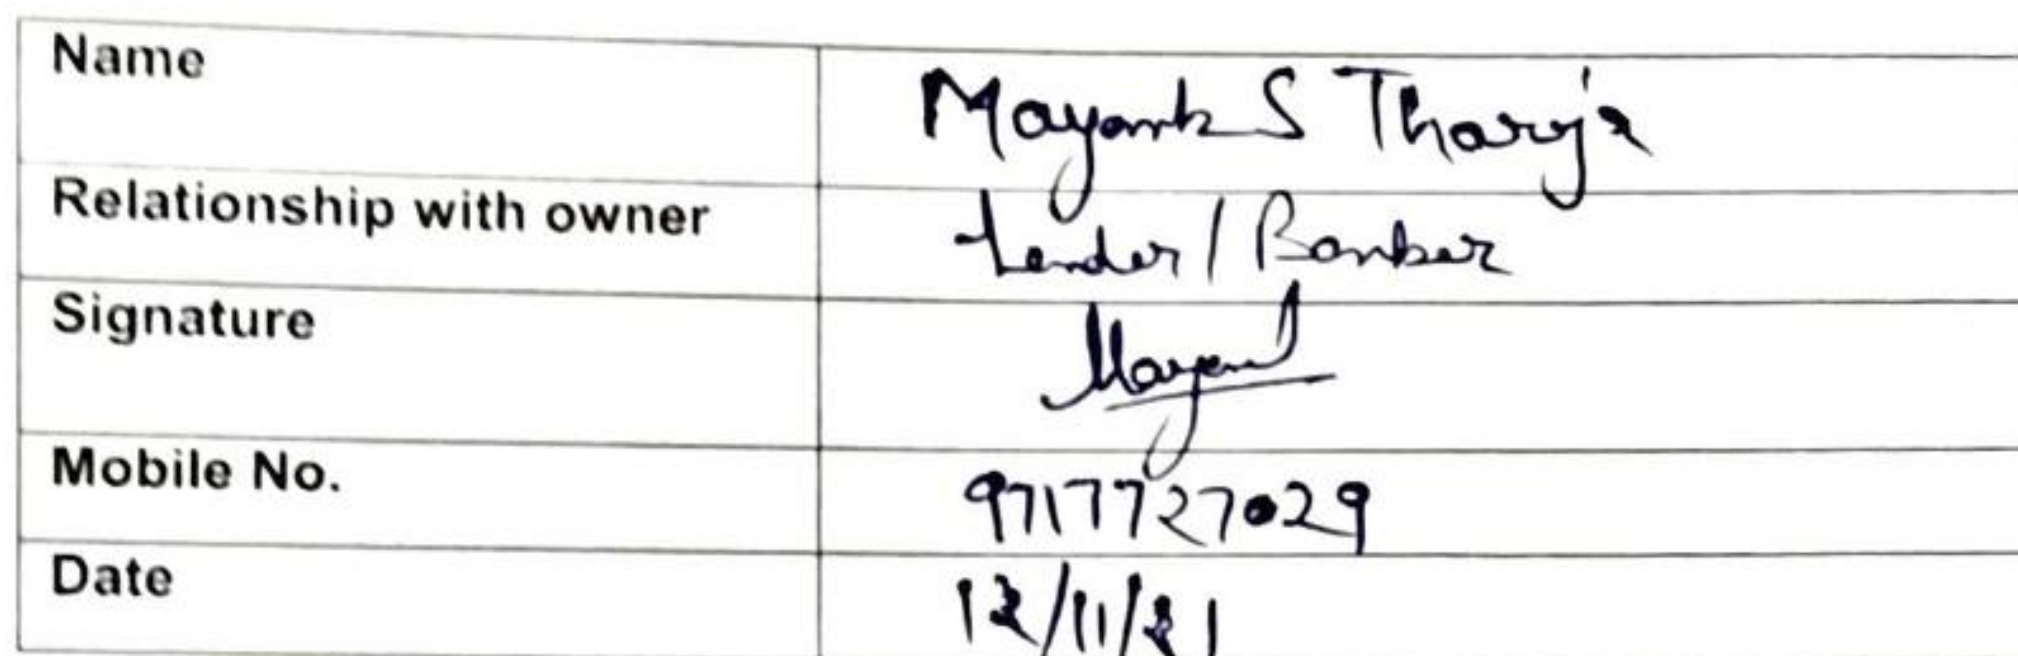 Name Mayank S Thareja
Relationship with owner Lender / Banker
Signature Mayank
Mobile No. 9717727029
Date 12/11/21